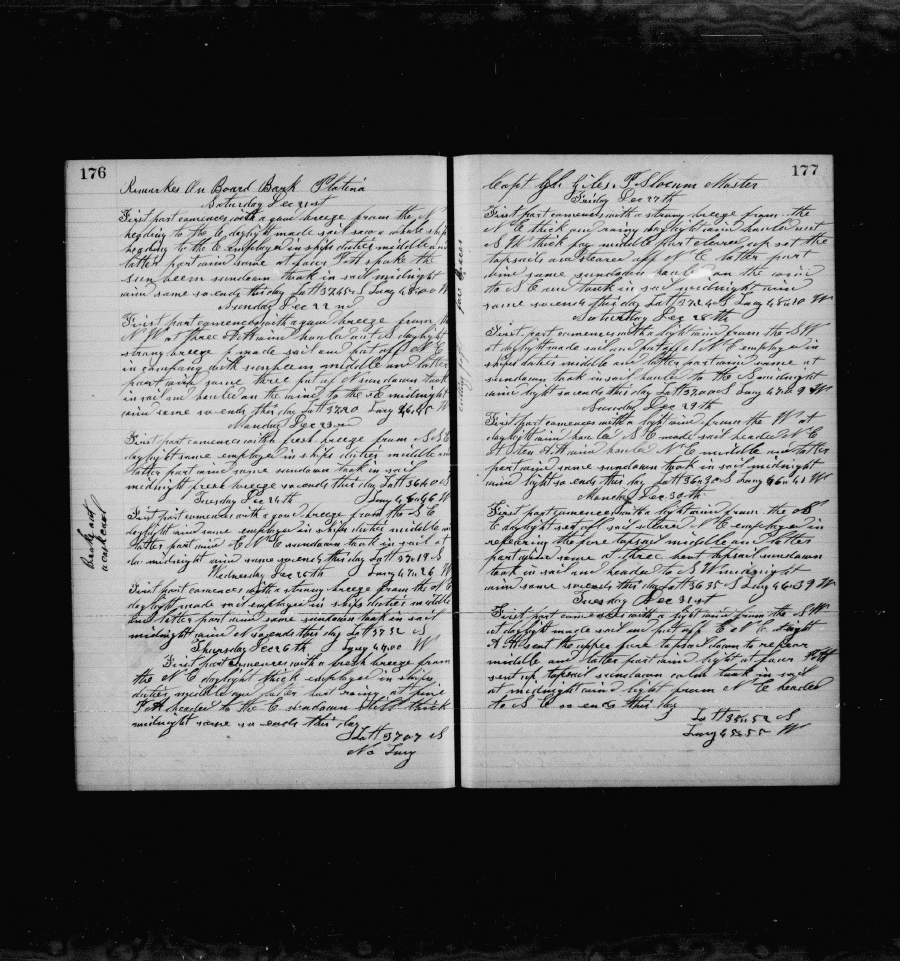 176
Remarkes On Board Bark Platina
Saturday Dec 21st
First part comences with a gone breeze from the N
heading to the E daylight made sail saw a whale ship
heading to the E employed in ships duties middle and
latter part wind same at four P M spoke the
sun beem sundown took in sail midnight
wind same so ends this day Latt 37.45 S Long 48.00 W
Sunday Dec 22nd
First part comences with a gone breeze from the
N W at three A M wind hauled out S daylight
strong breeze made sail and put off N E
in company with sunbeem middle and latter
part wind same three put of sundown took
in sail and hauled on the wind to the midnight
wind same so ends this day Latt 37.20 Long 46.45 W
Monday Dec 23rd
First part comences with fresh breeze from S S E
daylight same employed in ships duties middle and
latter part wind same sundown took in sail
midnight fresh breeze so ends this day Latt 36.40 S
Tuesday Dec 24th Long 46.46 W
First part comences with a gone breeze from the S E
daylight wind same employed in ships duties middle and
latter part wind E N E sundown took in sail at
midnight wind same so ends this day Latt 37.19 S
Wednesday Dec 25th Long 47.26 W
First part comences with a strong breeze from the N E
daylight made sail employed in ships duties middle
and latter part wind same sundown took in sail
midnight wind N so ends this day Latt 37.32 S
Thursday Dec 26th Long 47.00 W
First part comences with a fresh breeze from
the N E daylight thick employed in ships
duties middle and latter part rainy at five
P M headed to the E sundown still thick
midnight same so ends this day
Latt 37.07 S
No Long
broke out
177
Capt Gl. Giles P Slocum Master
Friday Dec 27th
First part comences with a strong breeze from the
N E thick and rainy daylight wind hauled out
S W thick fog middle part cleared up set the
topsails and cleared off N E latter part
wind same sundown hauled on the wind
to S E and took in sail midnight wind
same so ends this day Latt 37.24 S Long 48.10 W
Saturday Dec 28th
First part comences with a light wind from the S W
at daylight made sail and put off N E employed in
ships duties middle and latter part wind same at
sundown took in sail hauled to the S midnight
wind light so ends this day Latt 37.00 S Long 47.09 W
Sunday Dec 29th
First part comences with a light wind from the W at
daylight wind hauled S E made sail headed N E
at ten A M wind hauled N E middle and latter
part wind same sundown took in sail midnight
wind light so ends this day Latt 36.30 S Long 46.41 W
Monday Dec 30th
First part comences with a light wind from the
E daylight set all sail steered N E employed in
repairing the fore topsail middle and latter
part wind same at three bent topsail sundown
took in sail and headed to S W midnight
wind same so ends this day Latt 36.35 S Long 46.39 W
Tuesday Dec 31st
First part comences with a light wind from the S W
at daylight made sail and put off E N E at eight
A M sent the upper fore topsail down to repair
middle and latter part wind light at four P M
sent up topsail sundown calm took in sail
at midnight wind light from N E headed
to S E so ends this day
Latt 35.52 S
Long 45.55 W